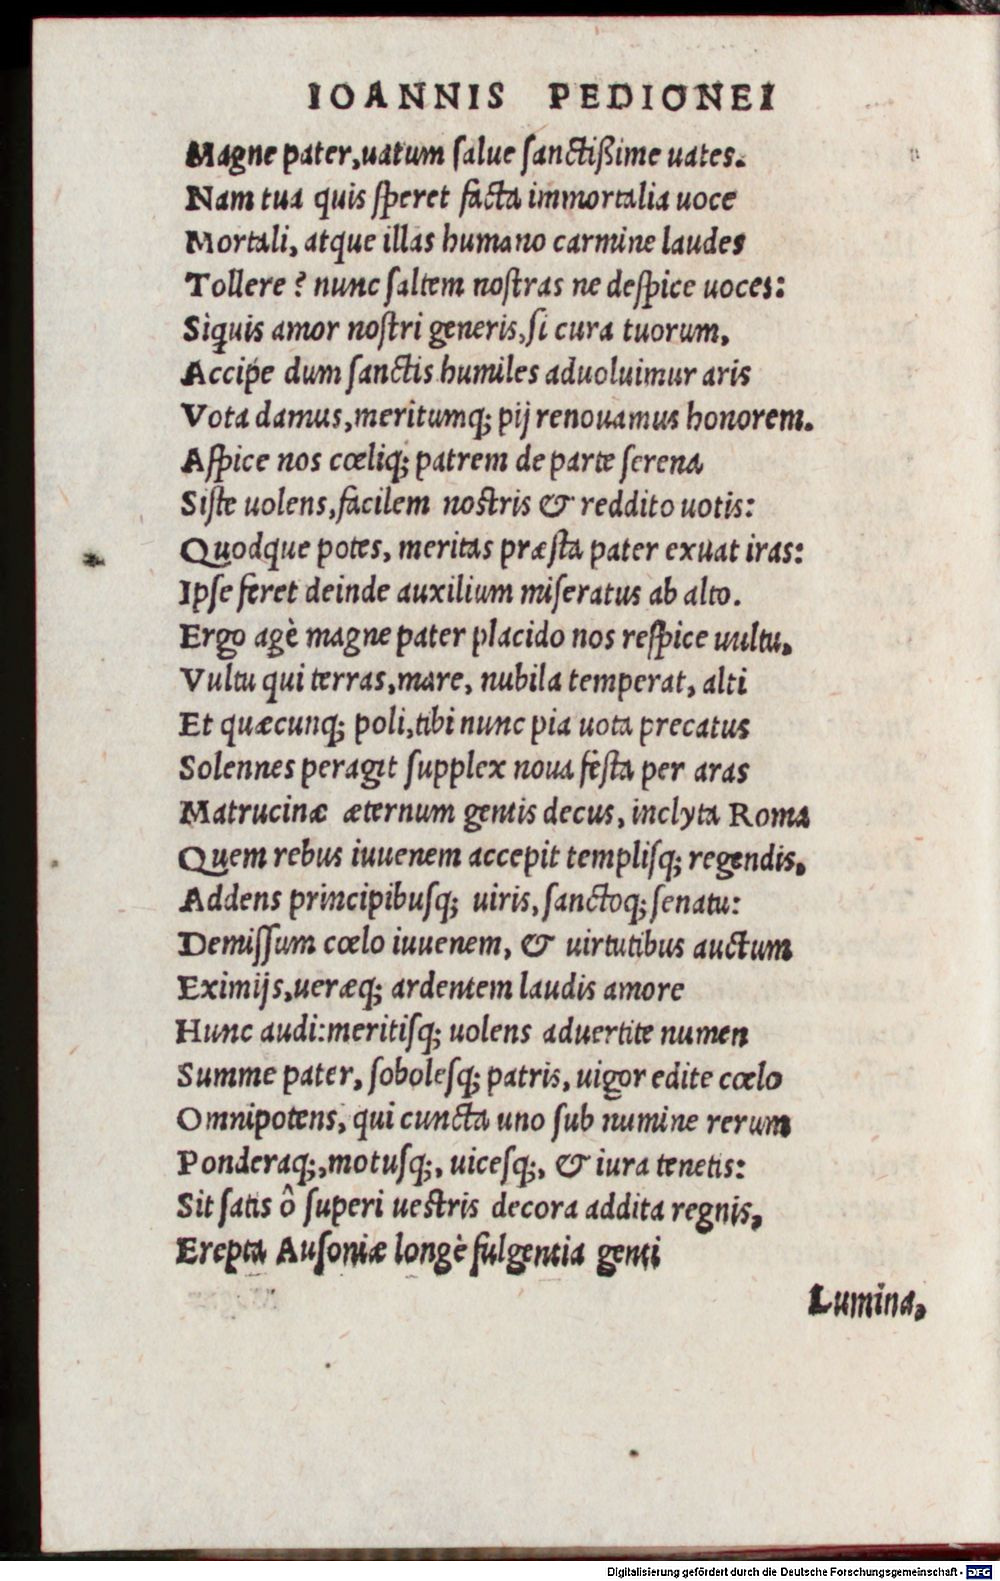 IOANNIS PEDIONEI
Magne pater,uatum ſalue ſanctißime uates.
Nam tua quis ſperet facta immortalia uoce
Mortali, atque illas humano carmine laudes
Tollere ? nunc ſaltem noſtras ne deſpice uoces:
Sìquis amor noſtri generis,ſi cura tuorum,
Accipe dum ſanctis humiles aduoluimur aris
Vota damus,meritumq; pij renouamus honorem.
Aſpice nos cœliq; patrem de parte ſerena
Siſte uolens,facilem noſtris & reddito uotis:
Quodque potes, meritas præſta pater exuat iras:
Ipſe feret deinde auxilium miſeratus ab alto.
Ergo agè magne pater placido nos reſpice uultu,
Vultu qui terras,mare, nubila temperat, alti
Et quæcunq; poli,tibi nunc pia uota precatus
Solennes peragit ſupplex noua feſta per aras
Matrucinæ æternum gentis decus, inclyta Roma
Quem rebus iuuenem accepit templiſq; regendis,
Addens principibuſq; uiris, ſanctoq; ſenatu:
Demiſſum cœlo iuuenem, & uirtutibus auctum
Eximijs,ueræq; ardentem laudis amore
Hunc audi:meritiſq; uolens aduertite numen
Summe pater, ſoboleſq; patris, uigor edite cœlo
Omnipotens, qui cuncta uno ſub numine rerum
Ponderaq;,motuſq;, uiceſq;, & iura tenetis:
Sit ſatis ô ſuperi ueſtris decora addita regnis,
Erepta Auſoniæ longè fulgentia genti
Lumina,
Digitalisierung gefördert durch die Deutsche Forschungsgemeinschaft - DFG